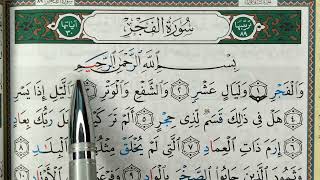 ترتيبها ٨٩
سُورَةُ الْفَجْرِ
آياتها ٣٠
بِسْمِ اللَّهِ الرَّحْمَٰنِ الرَّحِيمِ
وَالْفَجْرِ ١ وَلَيَالٍ عَشْرٍ ٢ وَالشَّفْعِ وَالْوَتْرِ ٣ وَاللَّيْلِ إِذَا يَسْرِ
٤ هَلْ فِي ذَٰلِكَ قَسَمٌ لِّذِي حِجْرٍ ٥ أَلَمْ تَرَ كَيْفَ فَعَلَ رَبُّكَ بِعَادٍ
٦ إِرَمَ ذَاتِ الْعِمَادِ ٧ الَّتِي لَمْ يُخْلَقْ مِثْلُهَا فِي الْبِلَادِ ٨
وَثَمُودَ الَّذِينَ جَابُوا الصَّخْرَ بِالْوَادِ ٩